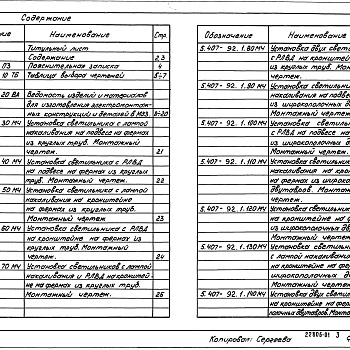 Содержание
ние Наименование Стр.
Титульный лист
Содержание 2,3
ПЗ Пояснительная записка 4
10 ТБ Таблица выбора чертежей 5-7
20 ВА Ведомость изделий и материалов
для изготовления электромонтаж-
ных конструкций и деталей в МЭЗ 8-20
30 МЧ Установка светильника с лампой
накаливания на подвесе на фермах
из круглых труб. Монтажный
чертеж. 21
40 МЧ Установка светильника с РЛВД
на подвесе на фермах из круглых
труб. Монтажный чертеж. 22
50 МЧ Установка светильника с лампой
накаливания на кронштейне
на фермах из круглых труб.
Монтажный чертеж 23
60 МЧ Установка светильника с РЛВД
на кронштейне на фермах из
круглых труб. Монтажный
чертеж. 24
70 МЧ Установка светильников с лампой
накаливания и РЛВД на кронштей-
не на фермах из круглых труб.
Монтажный чертеж. 25
Обозначение Наименован
5.407-92.1.80 МЧ Установка двух свети
с РЛВД на кронштейне
из круглых труб. Мон
чертеж.
5.407-92.1.90 МЧ Установка светильник
накаливания на подвесе
из широкополочных
Монтажный чертеж
5.407-92.1.100 МЧ Установка светильник
с РЛВД на подвесе на
из широкополочных
Монтажный чертеж
5.407-92.1.110 МЧ Установка светильник
накаливания на крон
на фермах из широкопо
двутавров. Монтаж
чертеж.
5.407-92.1.120 МЧ Установка светильник
на кронштейне на фер
из широкополочных дву
Монтажный чертеж
5.407-92.1.130 МЧ Установка светильн
с лампой накаливания
на кронштейне на ферм
широкополочных двут
Монтажный чертеж
5.407-92.1.140 МЧ Установка двух свети
на кронштейне на ферм
лочных двутавров. Мон
Копировал: Сергеева 22806-01 3